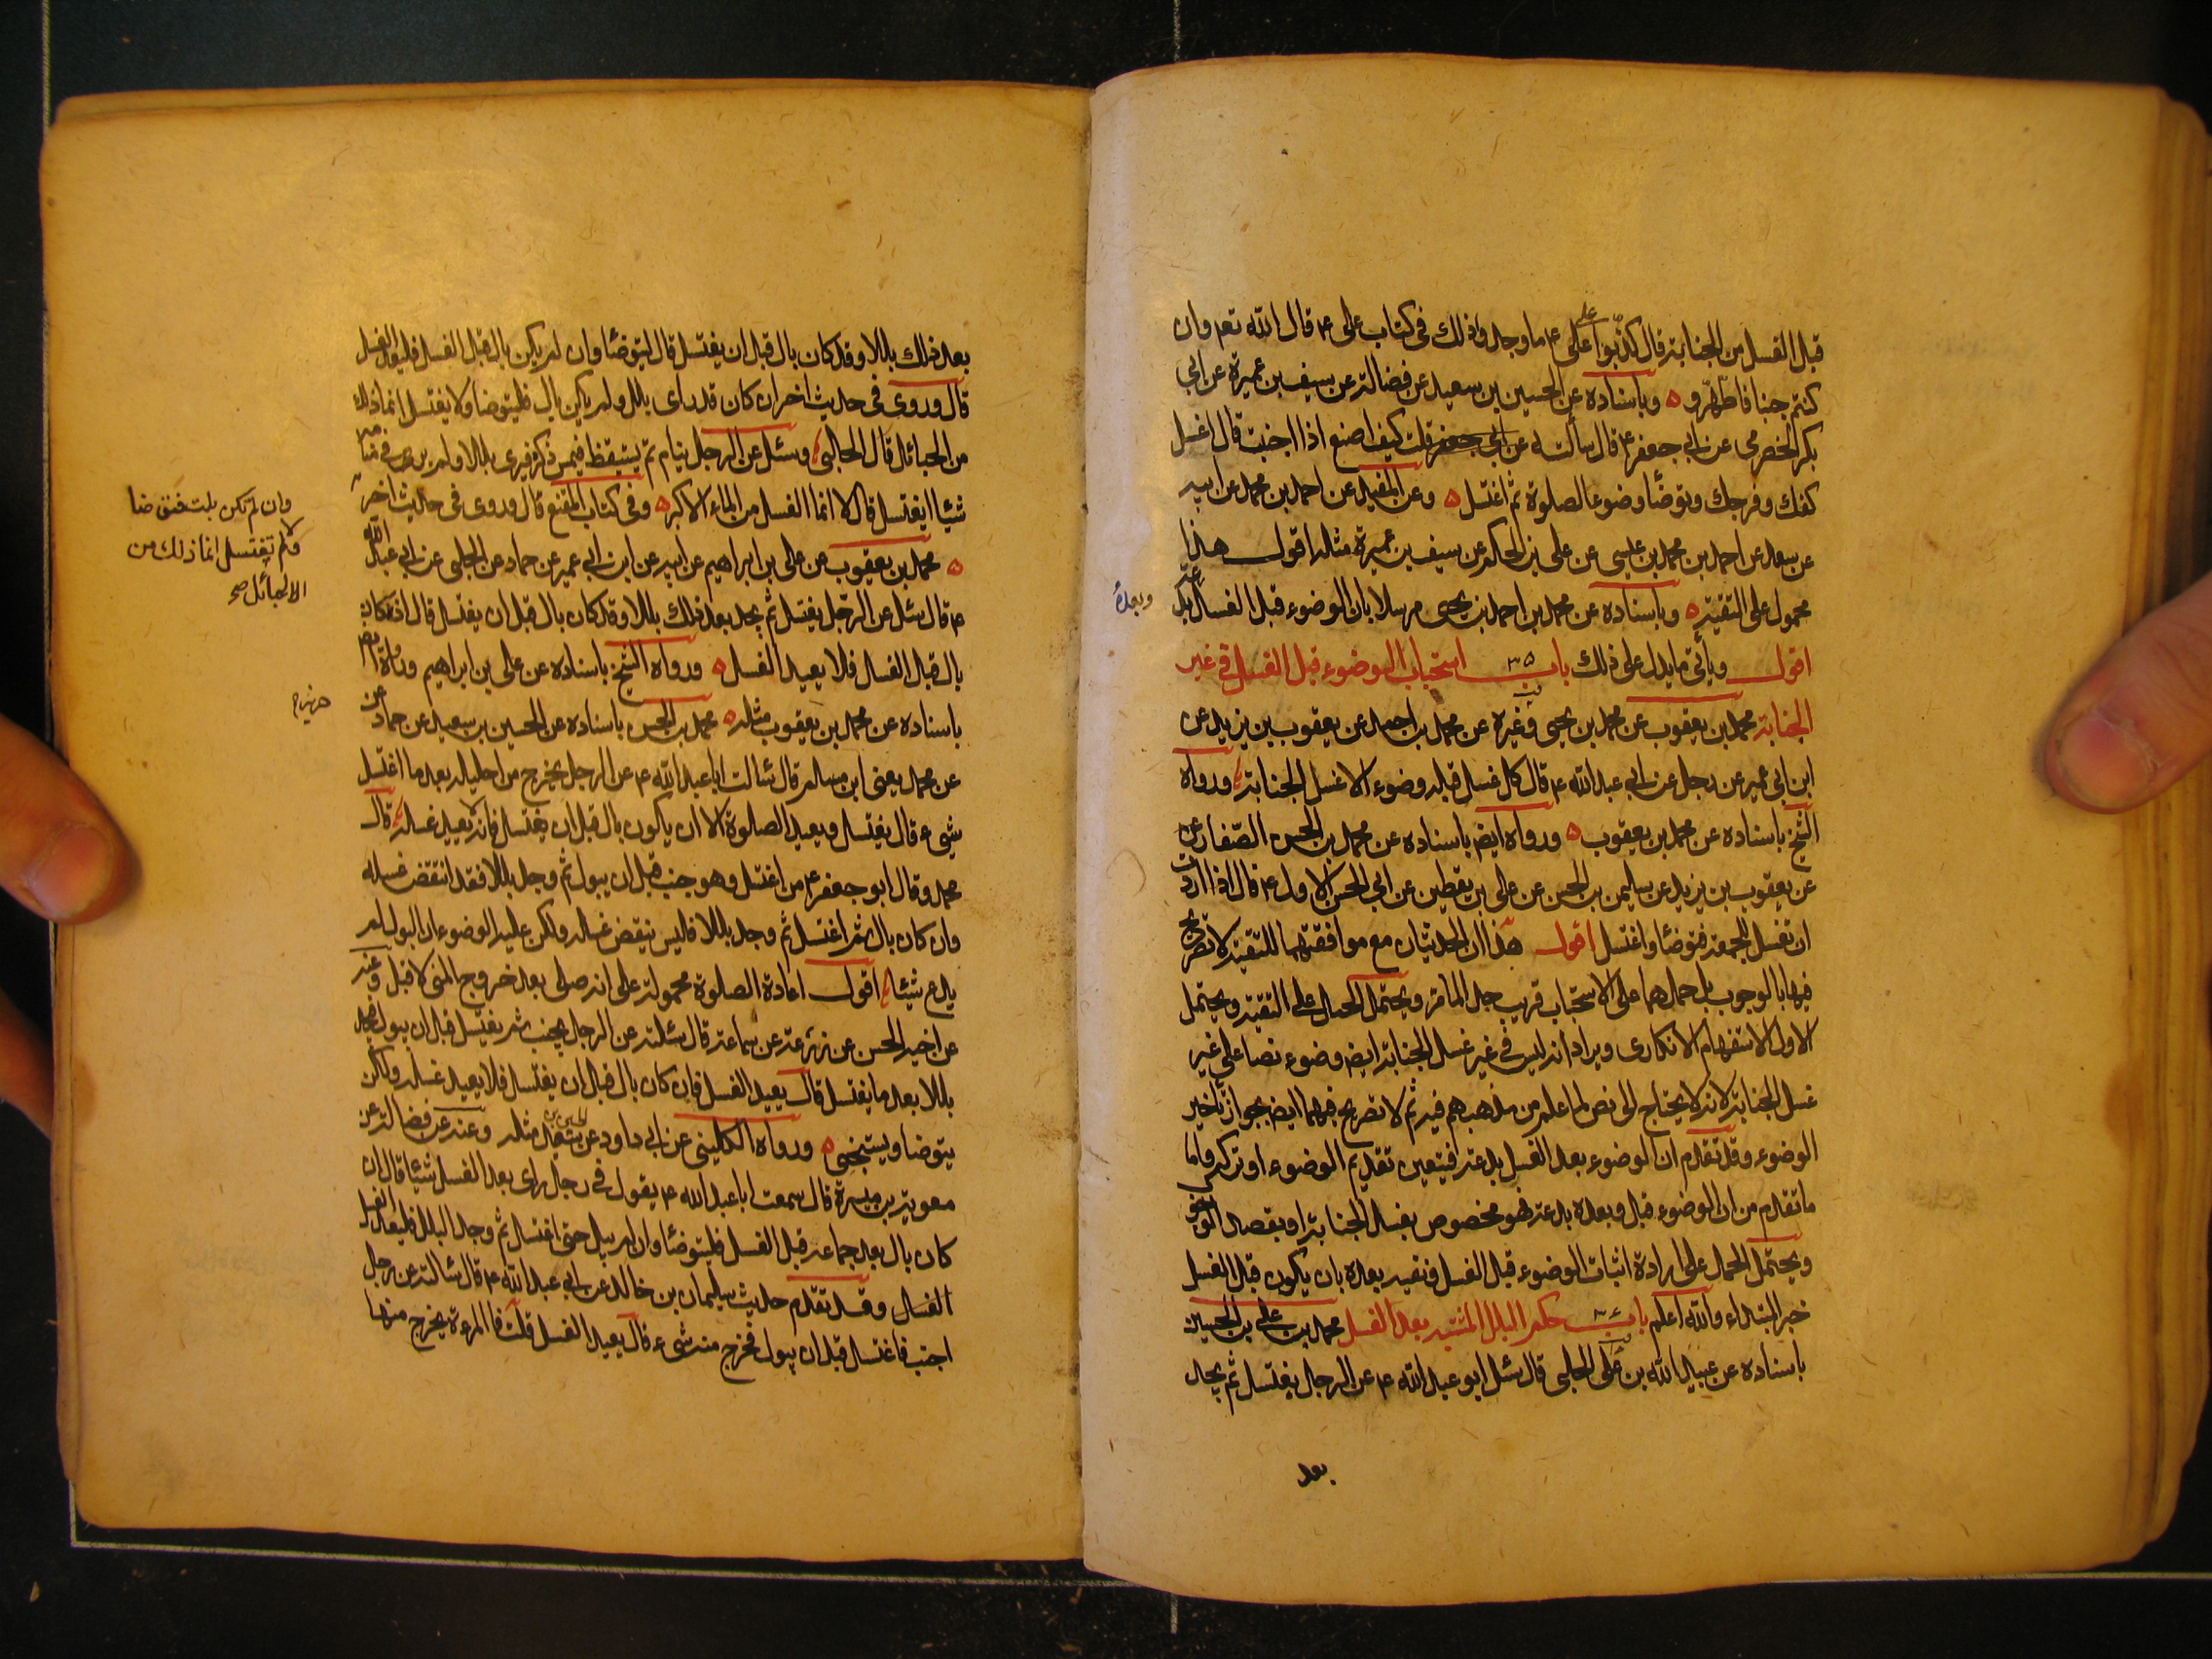 قبل الغسل من الجنابة قال كذبوا على على ع ما وجدوا ذلك فى كتاب على ع قال الله تعم وان
كنتم جنبا فاطهروا وباسناده عن الحسين بن سعيد عن فضالة عن سيف بن عميرة عن ابى
بكر الحضرمى عن ابى جعفر ع قال سألته عن ابى جعفر قلت كيف اصنع اذا اجنبت قال اغسل
كفك وفرجك وتوضأ وضوء الصلوة ثم اغتسل وعن المفيد عن احمد بن محمد عن ابيه
عن سعد عن احمد بن محمد بن عيسى عن على بن الحكم عن سيف بن عميرة مثله اقول هذا
محمول على التقية وباسناده عن محمد بن احمد بن يحيى مرسلا بان الوضوء قبل الغسل بدعة
وبعده
اقول وياتى ما يدل على ذلك باب ٣٥ استحباب الوضوء قبل الغسل فى غير
الجنابة محمد بن يعقوب عن محمد بن يحيى وغيره عن محمد بن احمد عن يعقوب بن يزيد عن
ابن ابى عمير عن رجل عن ابى عبد الله ع قال كل غسل قبله وضوء الا غسل الجنابة ورواه
الشيخ باسناده عن محمد بن يعقوب ورواه ايضا باسناده عن محمد بن الحسن الصفار عن
عن يعقوب بن يزيد عن سليمن بن الحسن عن على بن يقطين عن ابى الحسن الاول ع قال اذا اردت
ان تغسل للجمعة فتوضأ واغتسل اقول هذا ان الحديثان مع موافقتهما للتقية لا تصريح
فيهما بالوجوب بل حملهما على الاستحباب قريب جدا لما مر ويحتمل الحمل على التقية ويحتمل
الاول الاستفهام الانكارى ويراد انه ليس فى غير غسل الجنابة ايضا وضوء نصا على غير
غسل الجنابة لانه لا يحتاج الى نص لما علم من مذهبهم فيه ثم لا تصريح فيهما ايضا بجواز تأخير
الوضوء وقد تقدم ان الوضوء بعد الغسل بدعة فيتعين تقديم الوضوء او تركه واما
ما تقدم من ان الوضوء قبله وبعده بدعة فهو مخصوص بغسل الجنابة او بقصد الوجوب
ويحتمل الحمل على ارادة اثبات الوضوء قبل الغسل ونفيه بعده بان يكون قبل الغسل
خبر المبتداء والله اعلم باب ٣٦ حكم البلل المشتبه بعد الغسل محمد بن على بن الحسين
باسناده عن عبيد الله بن على الحلبى قال سئل ابو عبد الله ع عن الرجل يغتسل ثم يجد
بعد
بعد ذلك بللا وقد كان بال قبل ان يغتسل قال ليتوضأ وان لم يكن بال قبل الغسل فليعد الغسل
قال وروى فى حديث اخر ان كان قد رأى بللا ولم يكن بال فليتوضا ولا يغتسل انما ذلك
من الحبائل قال الحلبى وسئل عن الرجل ينام ثم يستيقظ فيمس ذكره فيرى بللا ولم ير فى منامه
شيئا ايغتسل قال لا انما الغسل من الماء الاكبر وفى كتاب المقنع قال وروى فى حديث اخر
وان لم تكن بلت فتوضا
ولا تغتسل انما ذلك من
الحبائل صح
محمد بن يعقوب عن على بن ابراهيم عن ابيه عن ابن ابى عمير عن حماد عن الحلبى عن ابى عبد الله
ع قال سئل عن الرجل يغتسل ثم يجد بعد ذلك بللا وقد كان بال قبل ان يغتسل قال ان كان
بال قبل الغسل فلا يعيد الغسل ورواه الشيخ باسناده عن على بن ابراهيم ورواه ايضا
باسناده عن محمد بن يعقوب مثله محمد بن الحسن باسناده عن الحسين بن سعيد عن حماد عن
حريز
عن محمد يعنى ابن مسلم قال سئالت ابا عبد الله ع عن الرجل يخرج من احليله بعد ما اغتسل
شىء قال يغتسل ويعيد الصلوة الا ان يكون بال قبل ان يغتسل فانه لا يعيد غسله قال
محمد وقال ابو جعفر ع من اغتسل وهو جنب قبل ان يبول ثم وجد بللا فقد انتقض غسله
وان كان بال ثم اغتسل ثم وجد بللا فليس ينقض غسله ولكن عليه الوضوء لان البول لم
يدع شيئا اقول اعادة الصلوة محمولة على انه صلى بعد خروج المنى لا قبل وعنه
عن اخيه الحسن عن زرعة عن سماعة قال سئلته عن الرجل يجنب ثم يغتسل قبل ان يبول فيجد
بللا بعد ما يغتسل قال يعيد الغسل فان كان بال قبل ان يغتسل فلا يعيد غسله ولكن
يتوضا ويستنجى ورواه الكلينى عن ابى داود عن الحسين بن سعيد مثله وعنه عن فضالة عن
معوية بن ميسرة قال سمعت ابا عبد الله ع يقول فى رجل رأى بعد الغسل شيئا قال ان
كان بال بعد جماعه قبل الغسل فليتوضأ وان لم يبل حتى اغتسل ثم وجد البلل فليعد الغسل
الغسل وقد تقدم حديث سليمان بن خالد عن ابى عبد الله ع قال سئالته عن رجل
اجنب فاغتسل قبل ان يبول فخرج منه شىء قال يعيد الغسل قلت فالمرءة يخرج منها